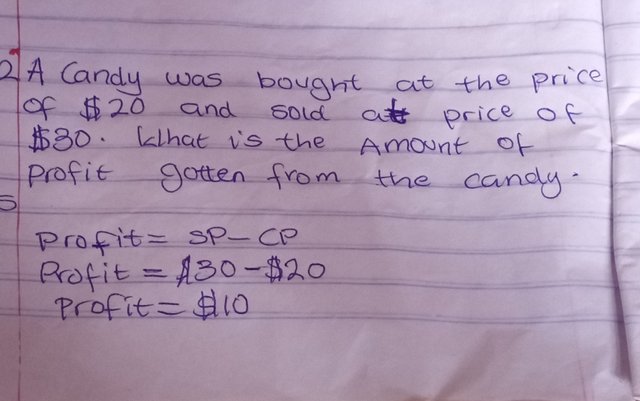 2 A Candy was bought at the price
of $20 and sold at price of
$30. What is the Amount of
Profit gotten from the candy.
S
Profit = SP - CP
Profit = $30 - $20
Profit = $10